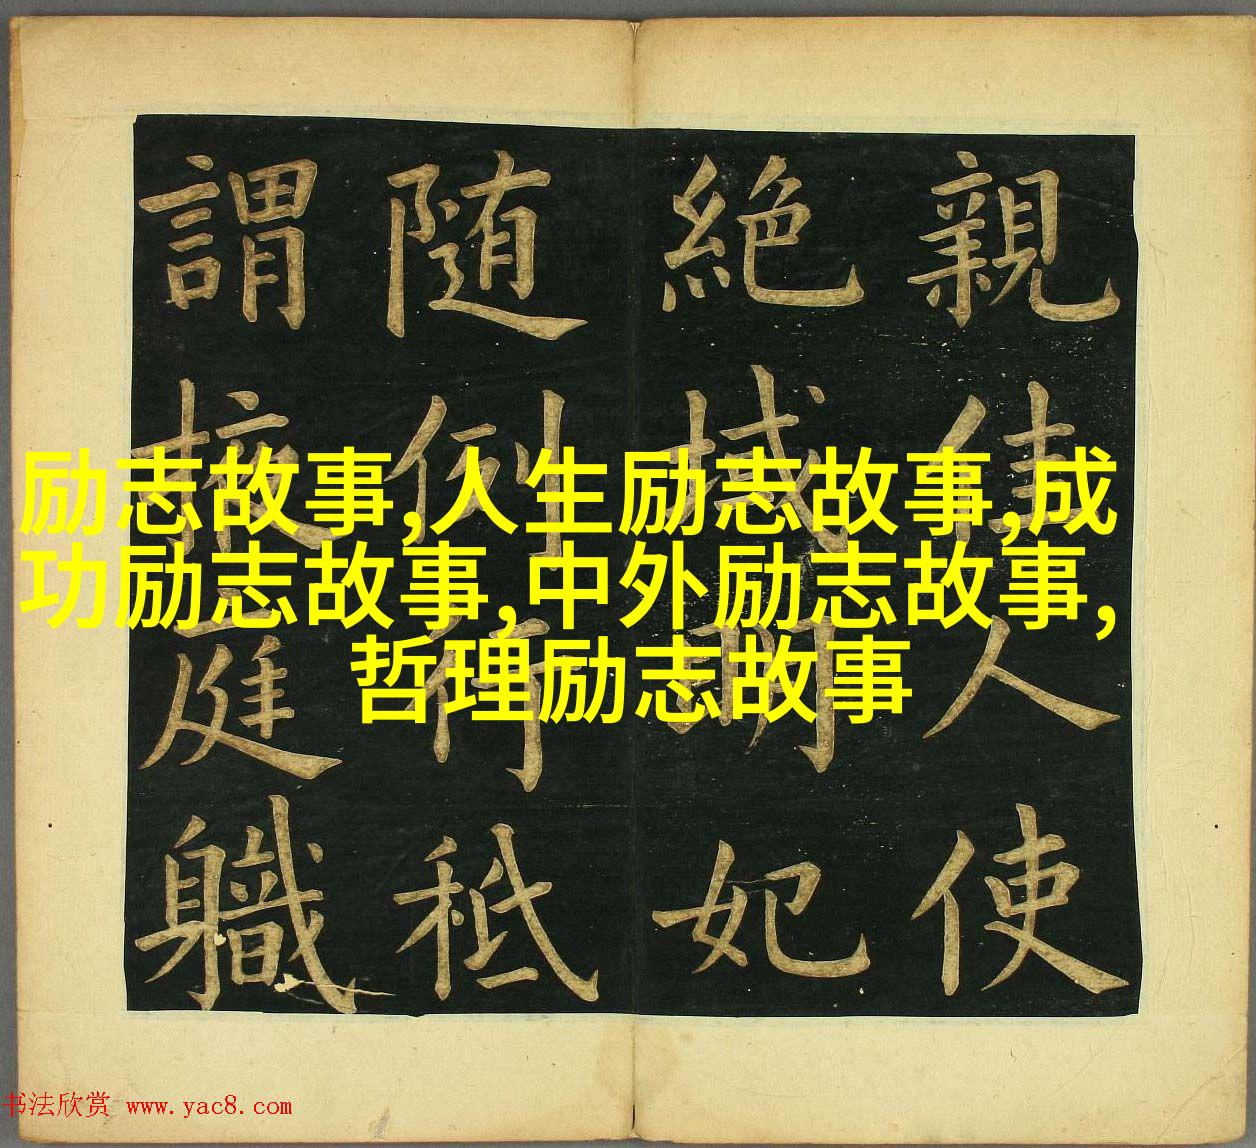 親佳人使
絶域明妃
随例行秖
謂掖庭軄
励志故事,人生励志故事,成
功励志故事,中外励志故事,
哲理励志故事
书法欣赏 www.yac8.com